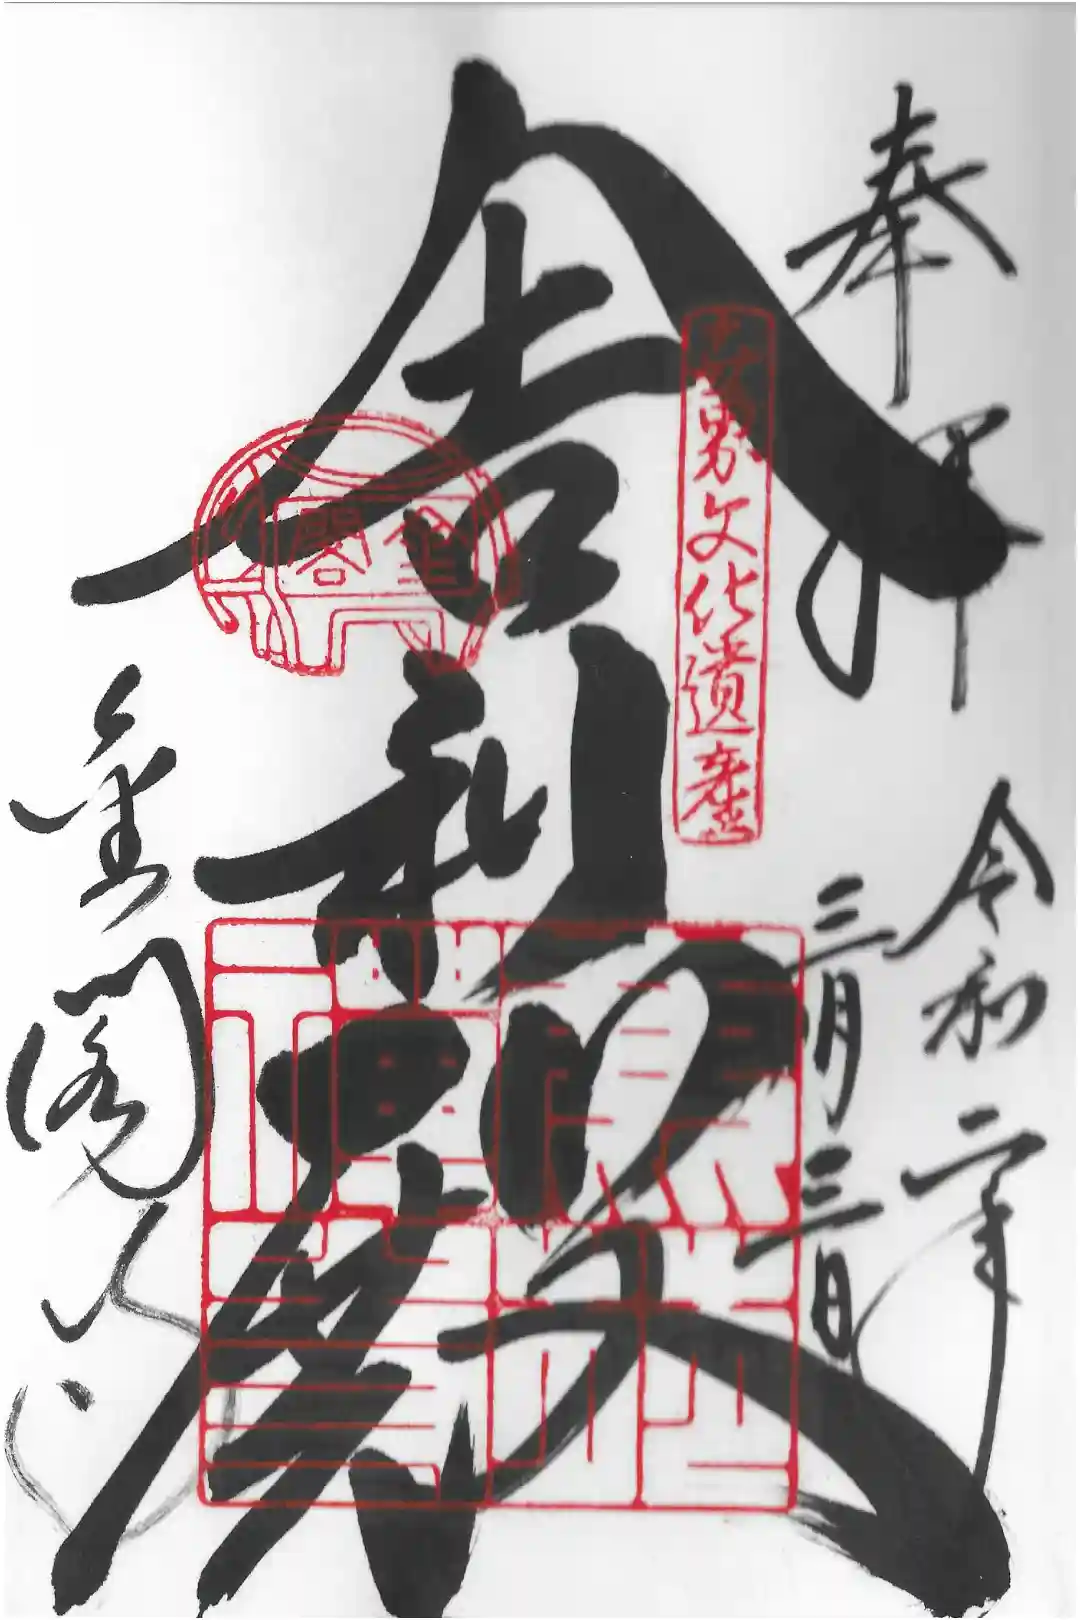 奉拝
令和二年
三月三日
世界文化遺産
舎利殿
金閣
金閣寺